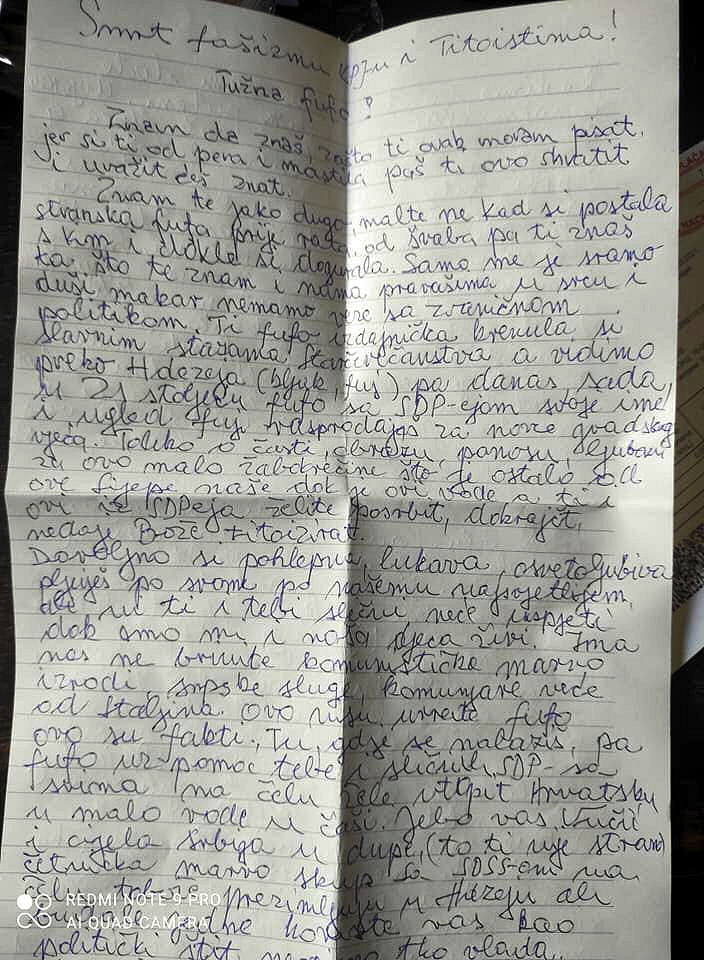 Smrt fašizmu KPJu i Titoistima!
Tužna fufo?
Znam da znaš, zašto ti ovak moram pisat,
jer si ti od pera i mastila paš ti ovo shvatit
i uvažit ćeš znat.
Znam te jako dugo, malte ne kad si postala
stranska fufa prije rata, od švaba pa ti znaš
s kim i dokle si dogurala. Samo me je sramo
ta, što te znam i nama pravašima u srcu i
duši makar nemamo veze sa zvaničnom
politikom. Ti fufo izdajnička krenula si
slavnim stazama Starčevićanstva a vidimo
preko Hdezeja (bljuk, fuj) pa danas, sada,
u 21 stoljeću fufo sa SDP-ejom svoje ime
i ugled, fuj, rasprodaješ za nove gradskog
vjeća. Toliko o časti, obrazu, ponosu, ljubavi
za ovo malo žabokrečine što je ostalo od
ove lijepe naše dok je ovi vode a ti i
ovi iz SDPeja želite posrbit, dokrajčit,
nedaj Bože titoizirat.
Dovoljno si pohlepna, lukava, osvetoljubiva
pljuješ po svome po našemu najsvjetlijem,
ali ni ti i tebi slični neće uspjeti
dok smo mi i naša djeca živi. Ima
nas ne brinite komunističko marvo
izrodi, srpske sluge, komunjare veće
od Staljina. Ovo nisu uvrede fufo
ovo su fakti. Tu, gdje se nalaziš, pa
fufo uz pomoć tebe i sličnih, SDP-sa
svima na čelu žele utopit Hrvatsku
u malo vode u čaši. Jebo vas Vučić
i cijela Srbija u dupe, (to ti nije strano)
četnička marvo skup sa SDSS-om na
čelu, prezimljuju u Hdzeju ali
vas kao
politički štit, tko vlada.
REDMI NOTE 9 PRO
AI QUAD CAMERA